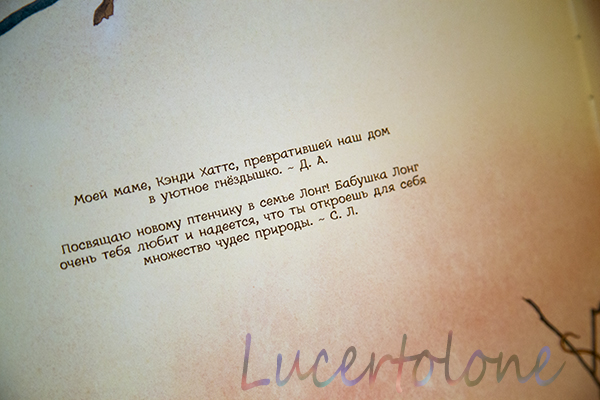 Моей маме, Кэнди Хаттс, превратившей наш дом
в уютное гнёздышко. ~ Д. А.
Посвящаю новому птенчику в семье Лонг! Бабушка Лонг
очень тебя любит и надеется, что ты откроешь для себя
множество чудес природы. ~ С. Л.
Lucertolone